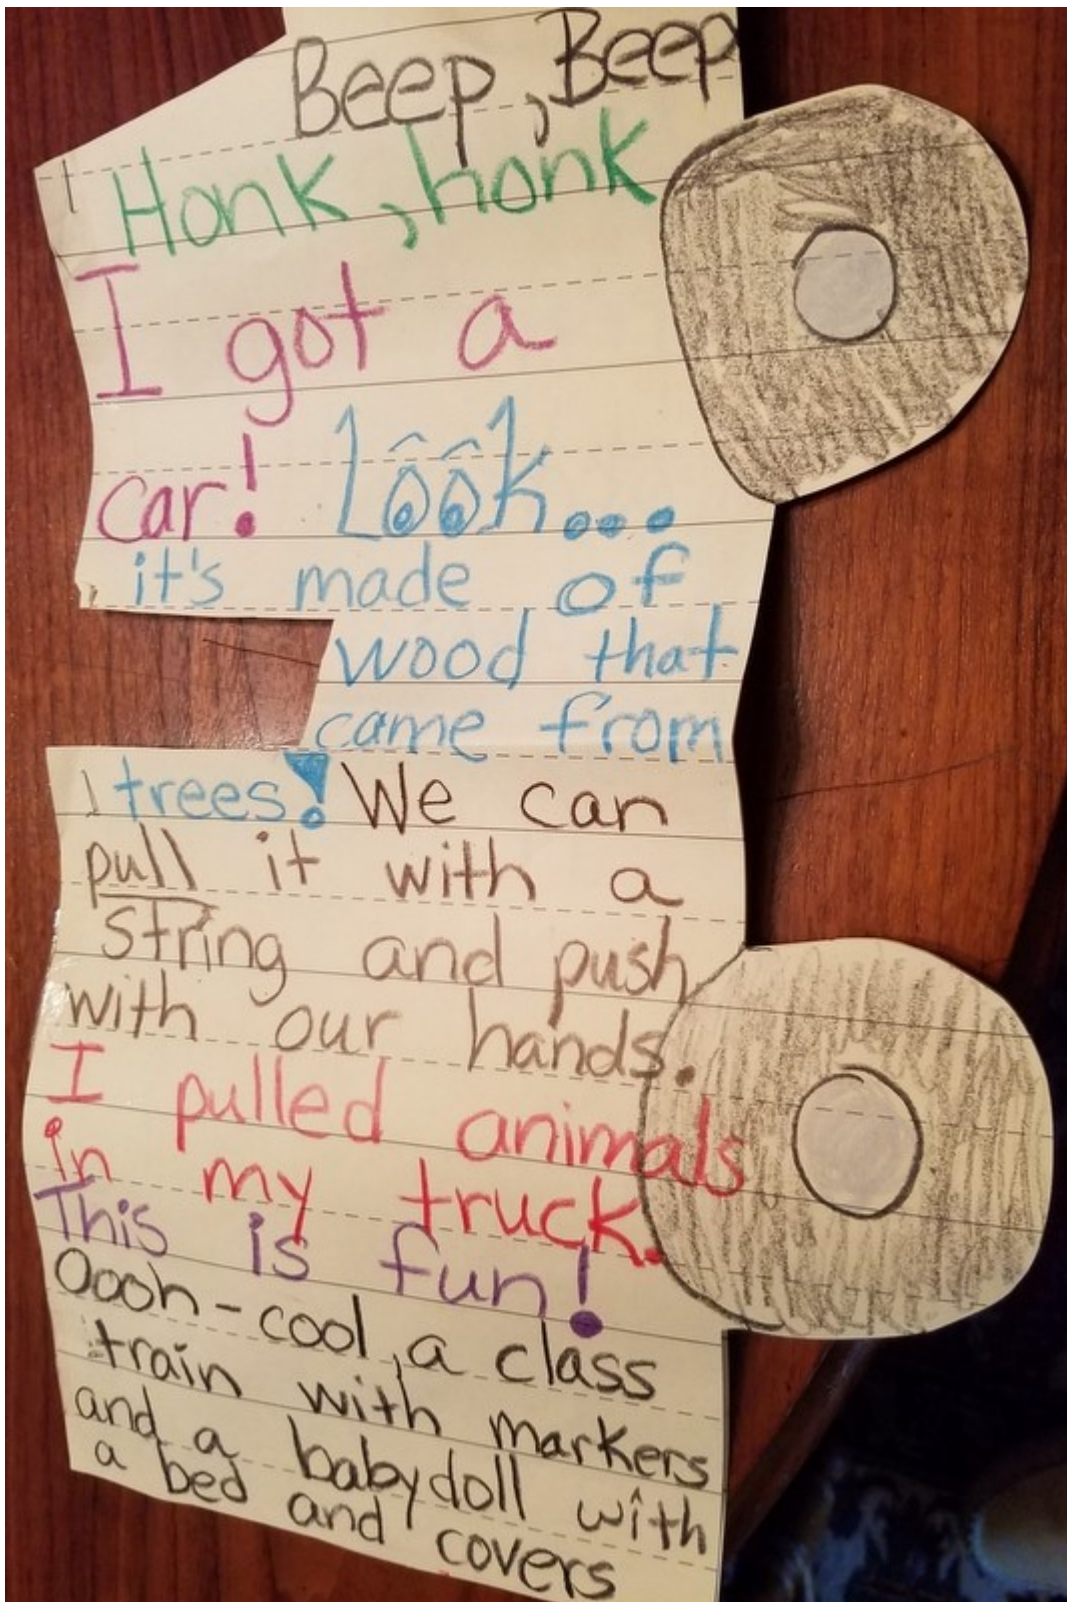 Beep, Beep
Honk, honk
I got a
car! Look...
it's made of
wood that
came from
trees! We can
pull it with a
string and push
with our hands.
I pulled animals
in my truck.
This is fun!
Oooh-cool, a class
train with markers
and a babydoll with
a bed and covers